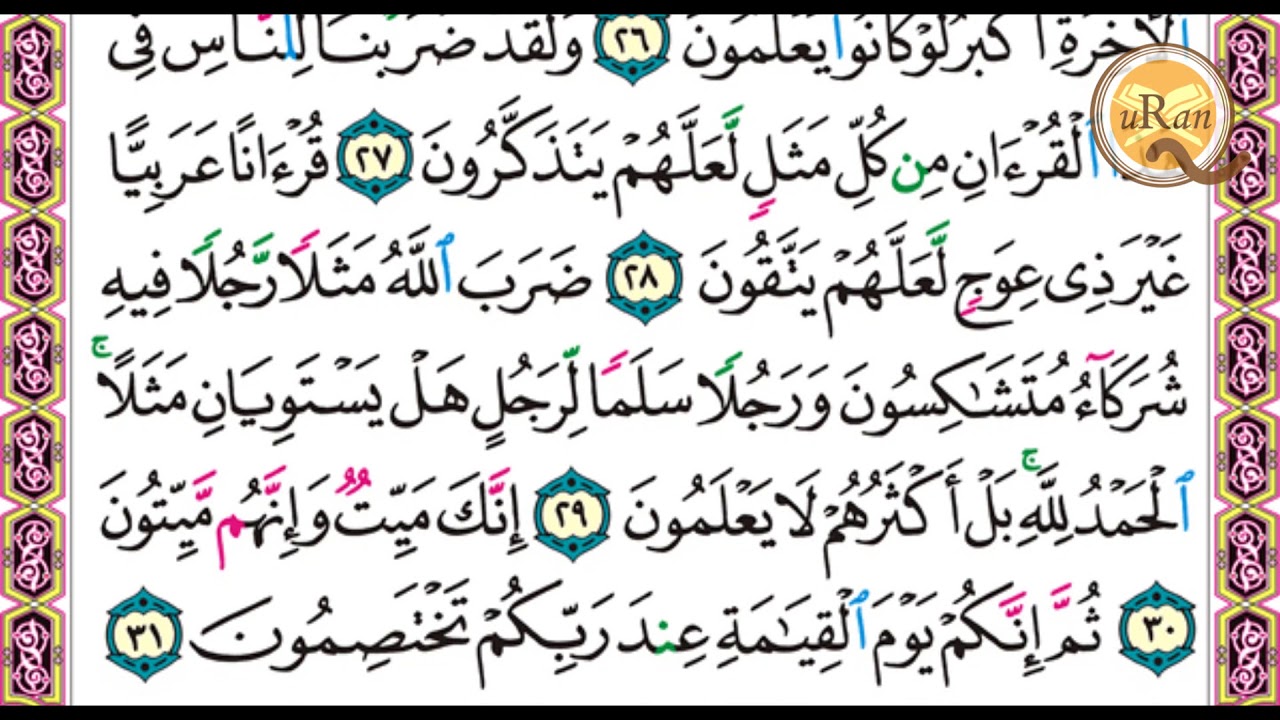 ٱلْأَخِرَةِ أَكْبَرُ لَوْ كَانُوا۟ يَعْلَمُونَ ٢٦ وَلَقَدْ ضَرَبْنَا لِلنَّاسِ فِى
ٱلْقُرْءَانِ مِن كُلِّ مَثَلٍ لَّعَلَّهُمْ يَتَذَكَّرُونَ ٢٧ قُرْءَانًا عَرَبِيًّا
غَيْرَ ذِى عِوَجٍ لَّعَلَّهُمْ يَتَّقُونَ ٢٨ ضَرَبَ ٱللَّهُ مَثَلًا رَّجُلًا فِيهِ
شُرَكَآءُ مُتَشَـٰكِسُونَ وَرَجُلًا سَلَمًا لِّرَجُلٍ هَلْ يَسْتَوِيَانِ مَثَلًا ۚ
ٱلْحَمْدُ لِلَّهِ ۚ بَلْ أَكْثَرُهُمْ لَا يَعْلَمُونَ ٢٩ إِنَّكَ مَيِّتٌ وَإِنَّهُم مَّيِّتُونَ
٣٠ ثُمَّ إِنَّكُمْ يَوْمَ ٱلْقِيَـٰمَةِ عِندَ رَبِّكُمْ تَخْتَصِمُونَ ٣١
uRan